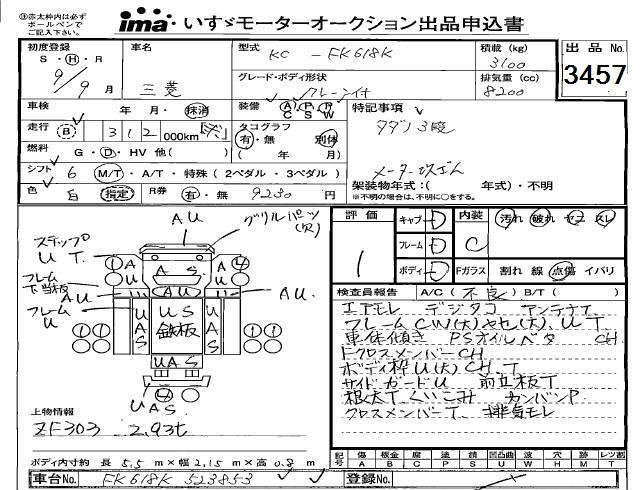 ※赤太枠内は必ずボールペンでご記入下さい。
ima いすゞモーターオークション出品申込書
初度登録 車名 型式 KC - FK618K 積載 (kg) 3100 出品No. 3457
S・H・R 9/9月 三菱 グレード・ボディ形状 クレーン付 排気量 (cc) 8200
車検 年 月・抹消 装備 AC PS PW 特記事項
走行 312 000km タコグラフ 有・無 別体 ラダン3段
燃料 G・D・HV 他( ) ( 年 月)
シフト 6 M/T・A/T・特殊 (2ペダル・3ペダル) メーター改ざん
色 白 指定 R券 有・無 9230円 架装物年式:( 年式)・不明
*不明の場合は、不明に○をする。
AU グリルパーツ(欠)
ステップ UT
フレーム下当板 AU
フレーム U
AS
AU
US
鉄板
UAS
UAS
UAS
AU
UAS
評価 1
キャブ D 内装 C 汚れ 破れ ヤニ スレ
フレーム D
ボディ D Fガラス 割れ 線 点傷 イバリ
検査員報告 A/C( 不良 ) B/T( )
エアモレ デジタコ アンテナ欠
フレームCW(大)ヤセ(大)、UT
車体傾き PSオイルベタ CH
FクロスメンバーCH
ボディ枠U(大)CH、T
サイドガードU 前立板T
根太Tくいこみ カンバンP
クロスメンバーT 排気モレ
上物情報
ZF303 2.93t
ボディ内寸約 長 5.5 m×幅 2.15 m×高 0.8 m
記号 傷A 板金B 腐C 塗P 錆S 凹凸曲U 波W 穴H 欠M 切T レツ割
車台No. FK618K 523853 登録No.